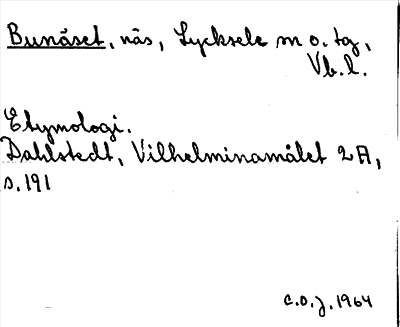 Bunäset, näs, Lycksele m o. tg,
Vb. l.
Etymologi.
Dahlstedt, Vilhelminamålet 2A,
s. 191
C.O.J. 1964